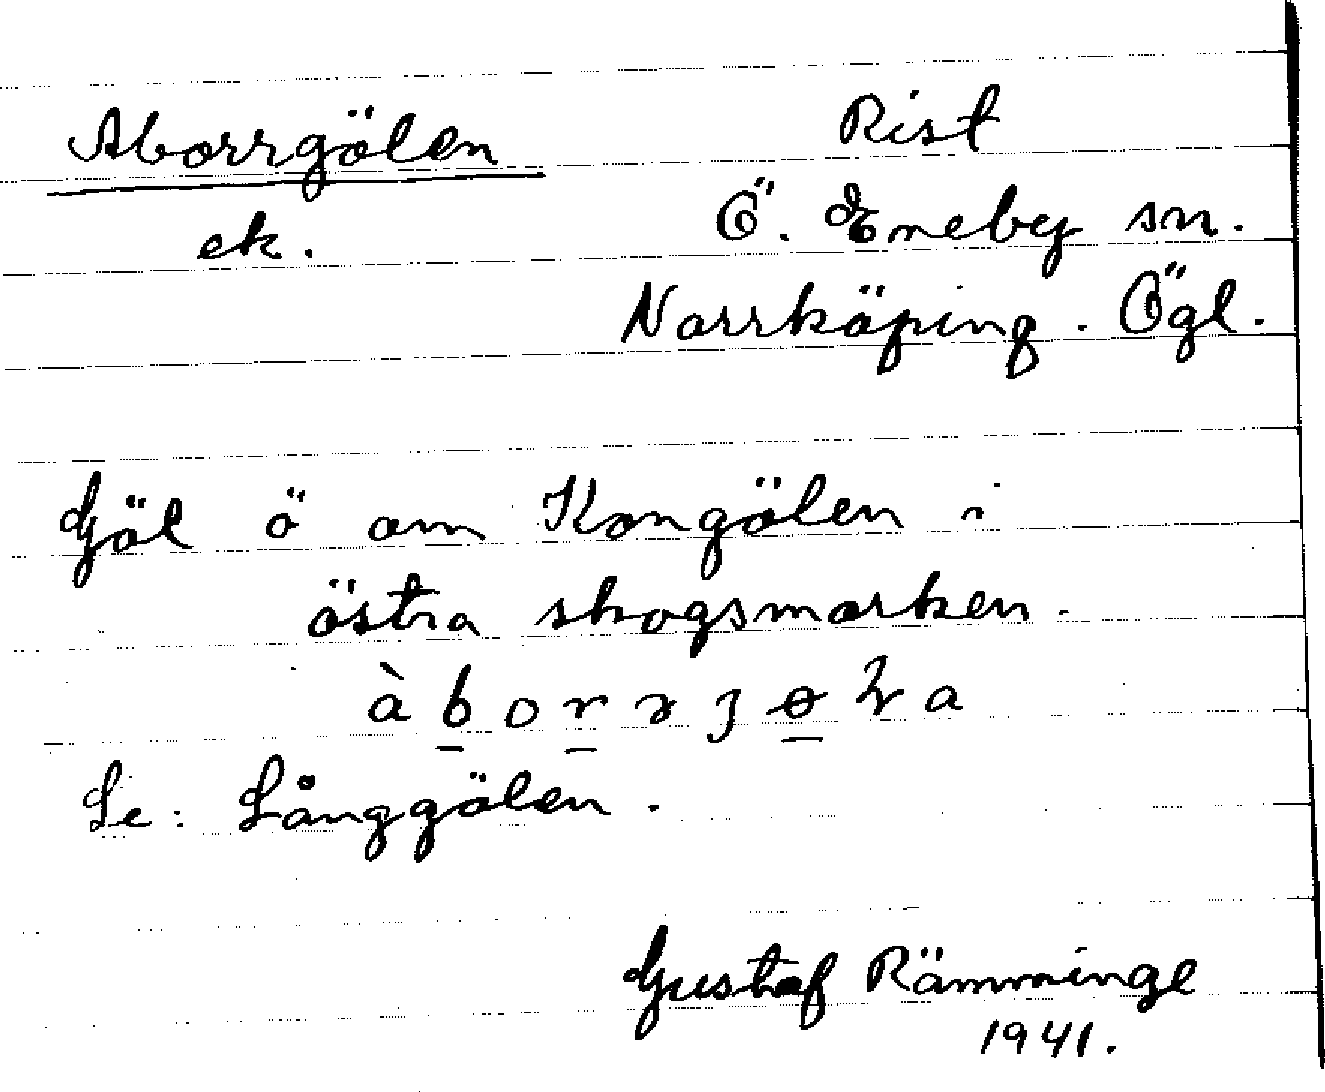 Aborrgölen
Rist
ek.
Ö. Eneby sn.
Norrköping. Ögl.
Göl ö om Kongölen i
östra skogsmarken.
Se: Långgölen.
Gustaf Rämminge
1941.